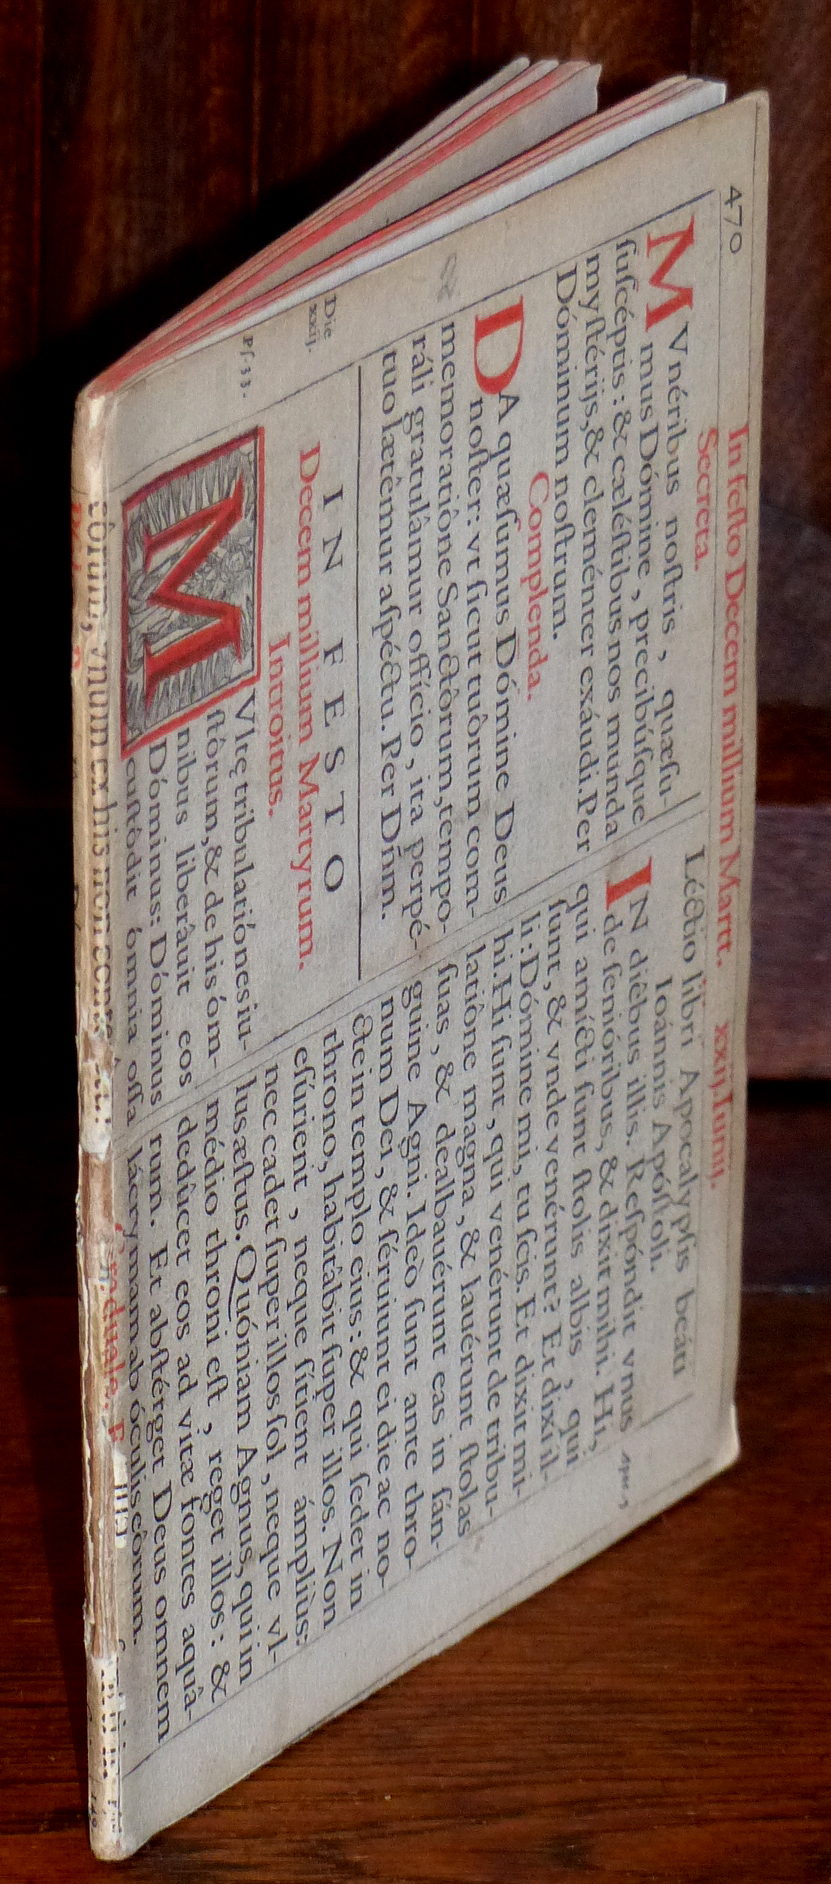 470
In festo Decem millium Martt. xxij. Iunij.
Secreta.
MVnéribus nostris, quæsu-
mus Dómine, precibúsque
suscéptis: & cæléstibus nos munda
mystérijs, & cleménter exáudi. Per
Dóminum nostrum.
Complenda.
DA quæsumus Dómine Deus
noster: vt sicut tuôrum com-
memoratiône Sanctôrum, tempo-
ráli gratulâmur offício, ita perpé-
tuo lætêmur aspéctu. Per Dnm.
Die
xxij.
IN FESTO
Decem millium Martyrum.
Introitus.
Ps. 33.
MVltę tribulatiónes iu-
stôrum, & de his óm-
nibus liberâuit eos
Dóminus: Dóminus
custôdit ómnia ossa
eôrum, vnum ex his non
Léctio libri Apocalypsis beáti
Ioánnis Apóstoli.
IN diêbus illis. Respóndit vnus
de senióribus, & dixit mihi. Hi,
qui amícti sunt stolis albis, qui
sunt, & vnde venérunt? Et dixi il-
li: Dómine mi, tu scis. Et dixit mi-
hi. Hi sunt, qui venérunt de tribu-
latiône magna, & lauérunt stolas
suas, & dealbauérunt eas in sán-
guine Agni. Ideò sunt ante thro-
num Dei, & séruiunt ei die ac no-
cte in templo eius: & qui sedet in
throno, habitâbit super illos. Non
esúrient, neque sítient ámpliùs:
nec cadet super illos sol, neque vl-
lus æstus. Quóniam Agnus, qui in
médio throni est, reget illos: &
dedûcet eos ad vitæ fontes aquâ-
rum. Et abstérget Deus omnem
lácrymam ab óculis eôrum.